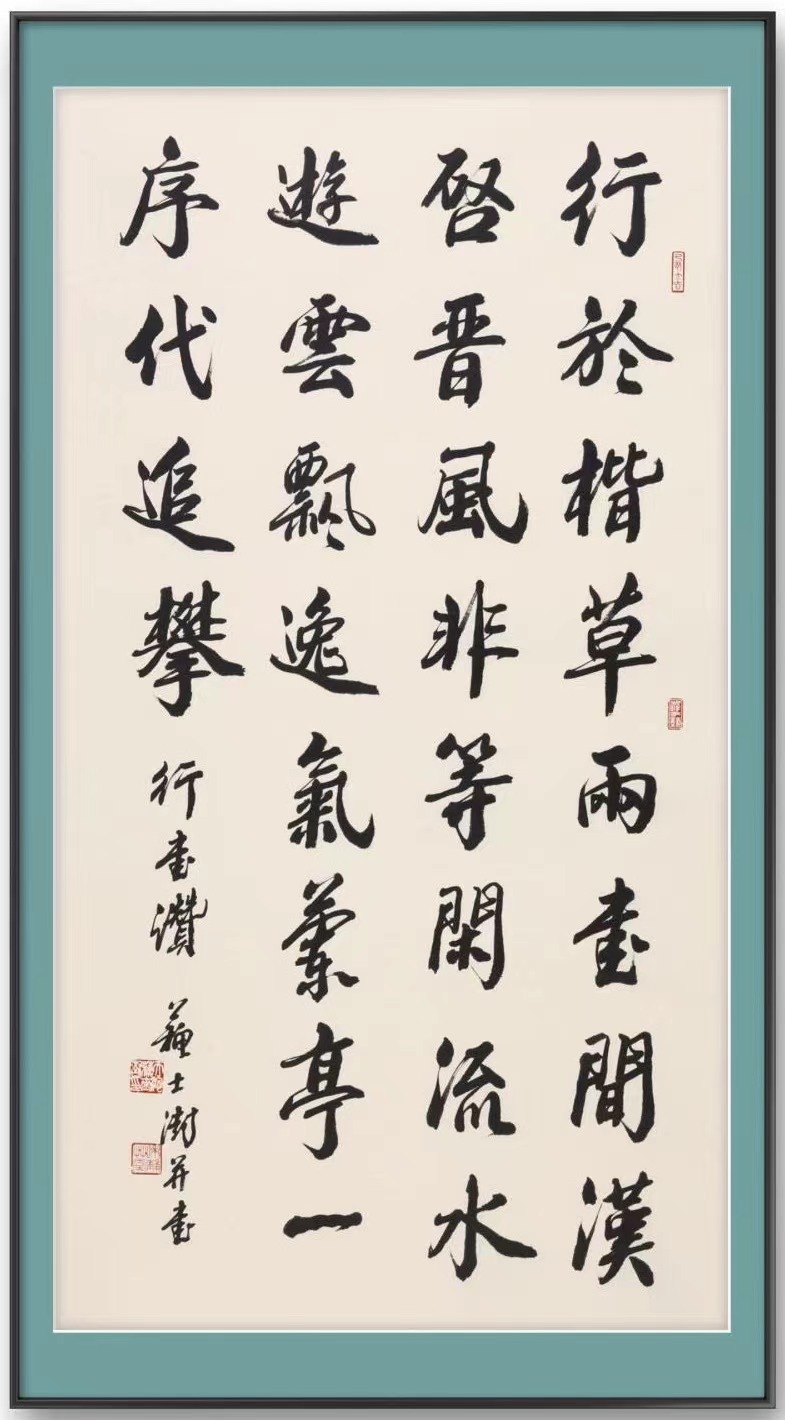 行於楷草兩書間漢
啓晋風非等閑流水
遊雲飄逸氣蘭亭一
序代追攀
行書讚 蘇士澍并書